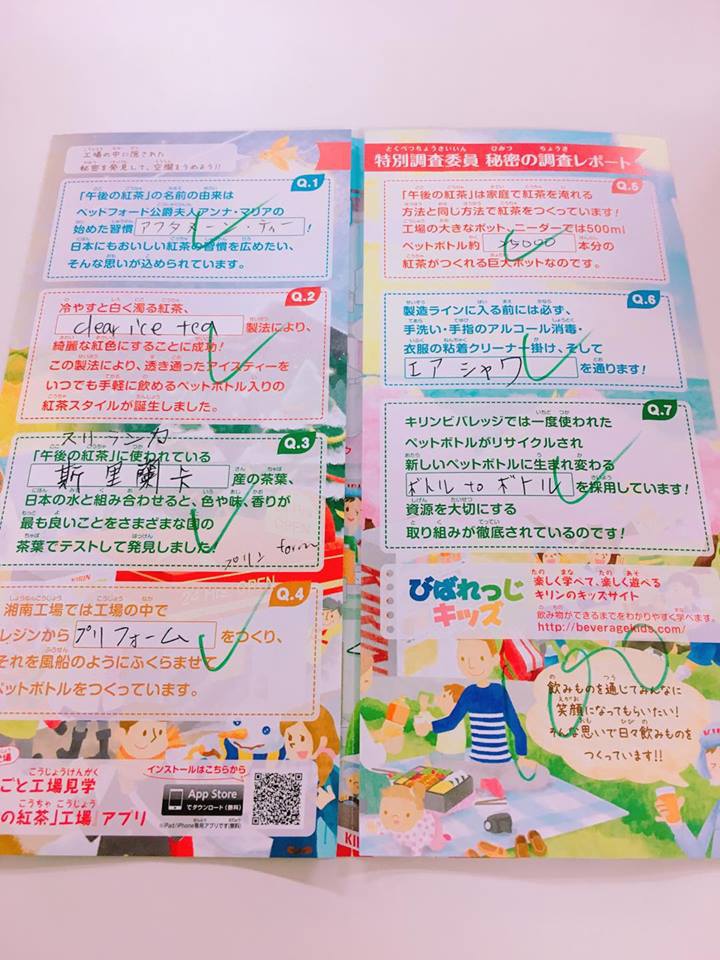 工場の中に隠された
秘密を発見して、空欄をうめよう!!
Q.1
「午後の紅茶」の名前の由来は
ベッドフォード公爵夫人アンナ・マリアの
始めた習慣 アフタヌーン・ティー !
日本にもおいしい紅茶の習慣を広めたい、
そんな思いが込められています。
Q.2
冷やすと白く濁る紅茶、
clear ice tea 製法により、
綺麗な紅色にすることに成功!
この製法により、透き通ったアイスティーを
いつでも手軽に飲めるペットボトル入りの
紅茶スタイルが誕生しました。
スリランカ
Q.3
「午後の紅茶」に使われている
斯里蘭卡 産の茶葉、
日本の水と組み合わせると、色や味、香りが
最も良いことをさまざまな国の
茶葉でテストして発見しました!
プリン form
Q.4
湘南工場では工場の中で
レジンから プリフォーム をつくり、
それを風船のようにふくらませて
ペットボトルをつくっています。
ごと工場見学
の紅茶」工場」アプリ
インストールはこちらから
App Store
でダウンロード(無料)
※iPad/iPhone専用アプリです(無料)
特別調査委員 秘密の調査レポート
Q.5
「午後の紅茶」は家庭で紅茶を淹れる
方法と同じ方法で紅茶をつくっています!
工場の大きなポット、ニーダーでは500ml
ペットボトル約 25000 本分の
紅茶がつくれる巨大ポットなのです。
Q.6
製造ラインに入る前には必ず、
手洗い・手指のアルコール消毒・
衣服の粘着クリーナー掛け、そして
エアシャワー を通ります!
Q.7
キリンビバレッジでは一度使われた
ペットボトルがリサイクルされ
新しいペットボトルに生まれ変わる
ボトル to ボトル を採用しています!
資源を大切にする
取り組みが徹底されているのです!
びばれっじ
キッズ
楽しく学べて、楽しく遊べる
キリンのキッズサイト
飲み物ができるまでをわかりやすく学べます。
http://beveragekids.com/
飲みものを通じてみんなに
笑顔になってもらいたい!
そんな思いで日々飲みものを
つくっています!!